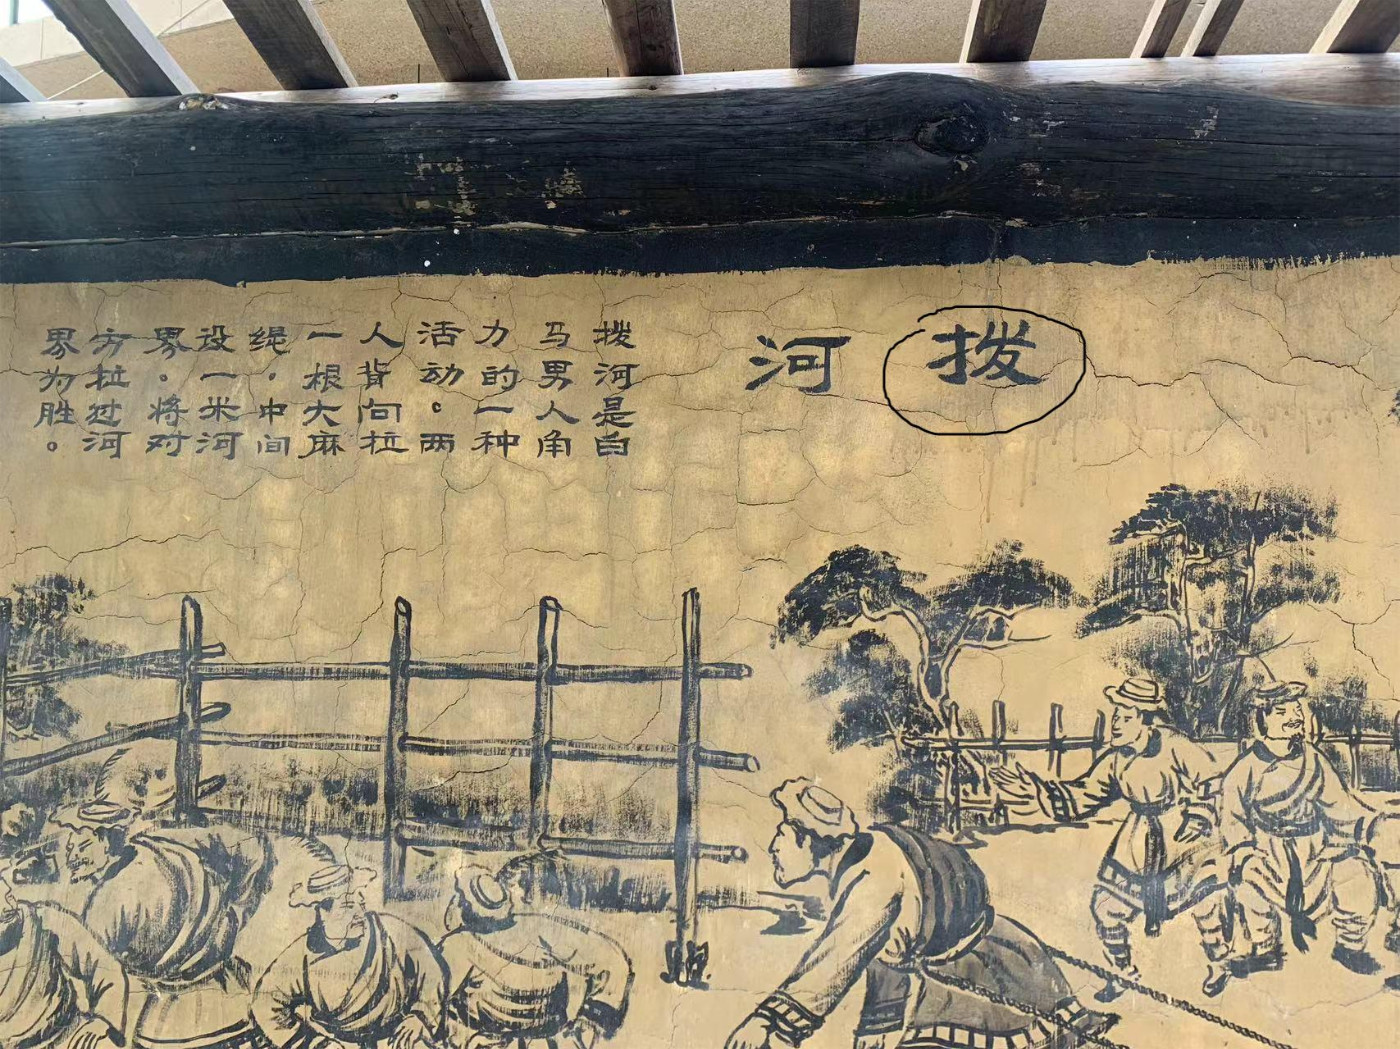 拨河
拨河是白
马男人角
力的一种
活动。两
人背向拉
一根大麻
绳，中间
设一米河
界。将对
方拉过河
界为胜。